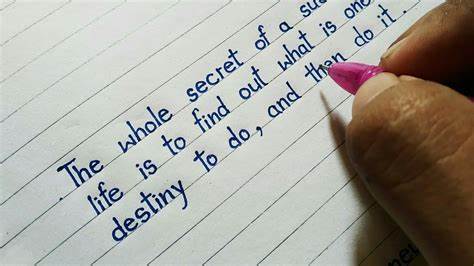 The whole secret of a su
life is to find out what is one
destiny to do, and then do it.